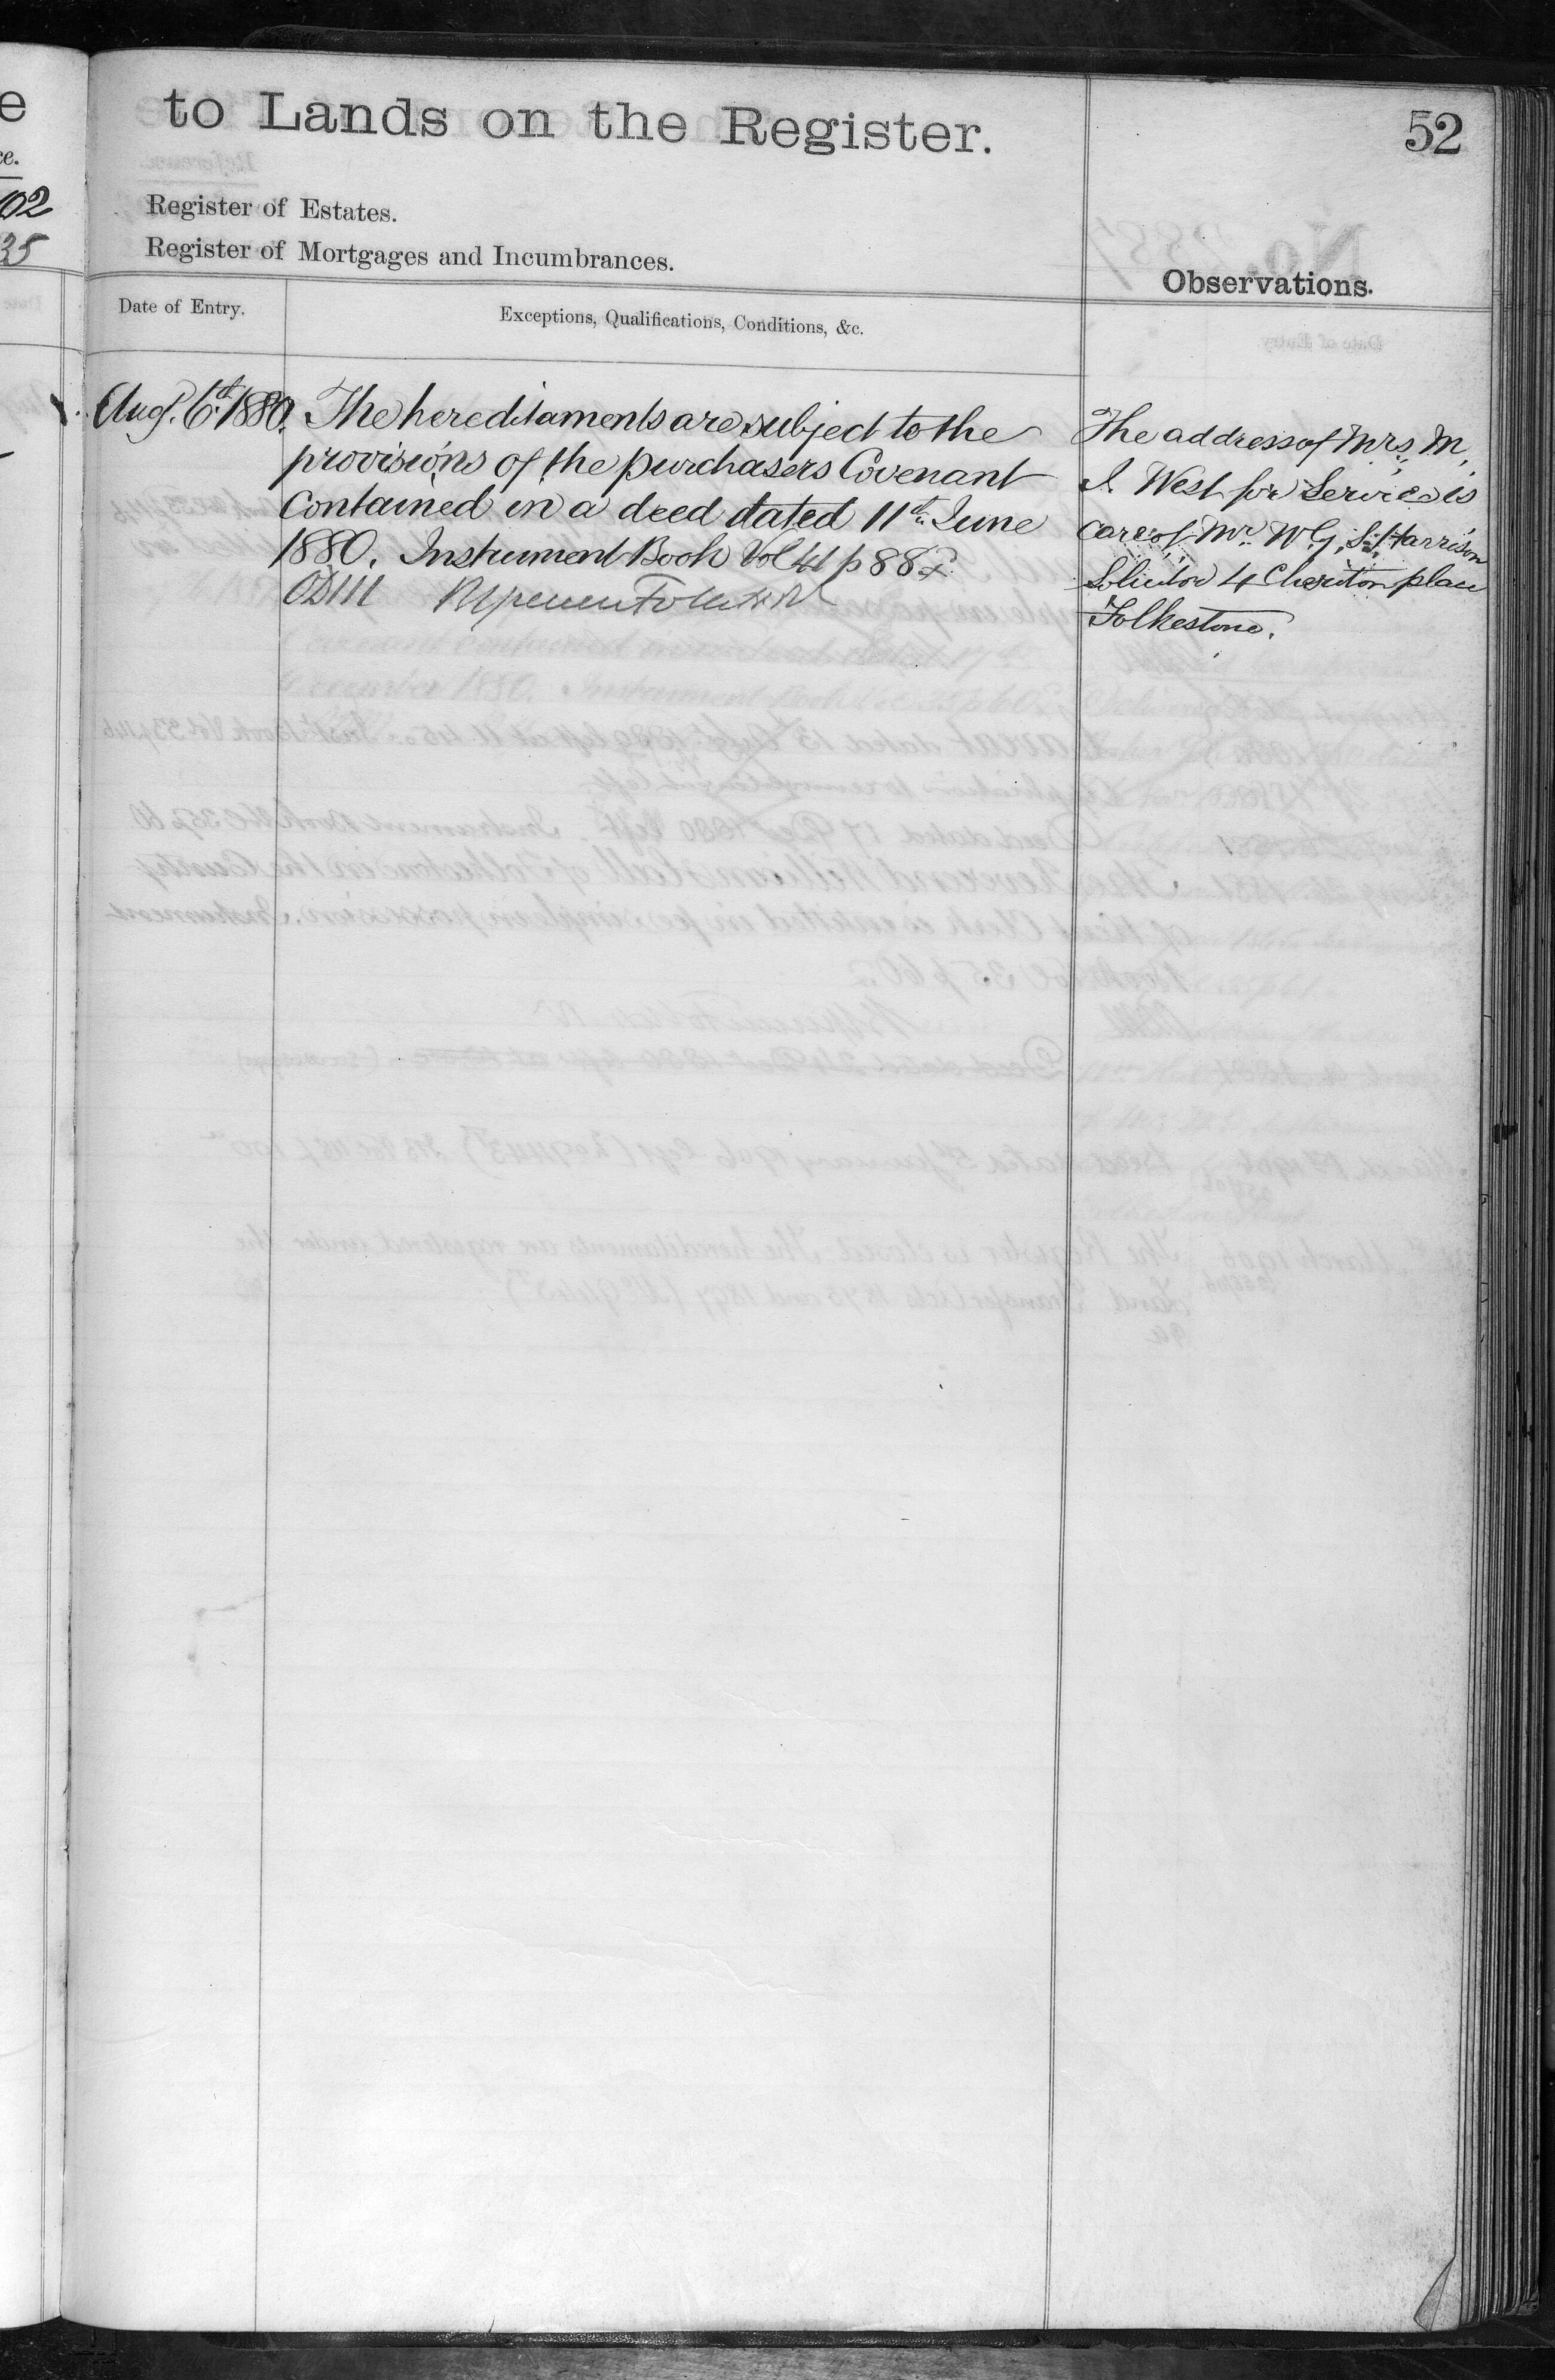 to Lands on the Register.
52
Register of Estates.
Register of Mortgages and Incumbrances.
Observations.
Date of Entry.
Exceptions, Qualifications, Conditions, &c.
Aug. 6th 1880. The hereditaments are subject to the
provisions of the purchasers Covenant
Contained in a deed dated 11th June
1880. Instrument Book Vol 41 p 88
The address of Mrs. M.
I. West for Service is
care of Mr. W. G. S. Harrison
Solicitor 4 Cheriton place
Folkestone.
e
ce.
102
35